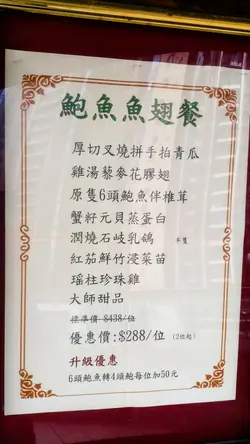 鮑魚魚翅餐
厚切叉燒拼手拍青瓜
雞湯藜麥花膠翅
原隻6頭鮑魚伴椎茸
蟹籽元貝蒸蛋白
潤燒石岐乳鴿 半隻
紅茄鮮竹浸菜苗
瑤柱珍珠雞
大師甜品
標準價 $438/位
優惠價:$288/位 (2位起)
升級優惠
6頭鮑魚轉4頭鮑每位加50元